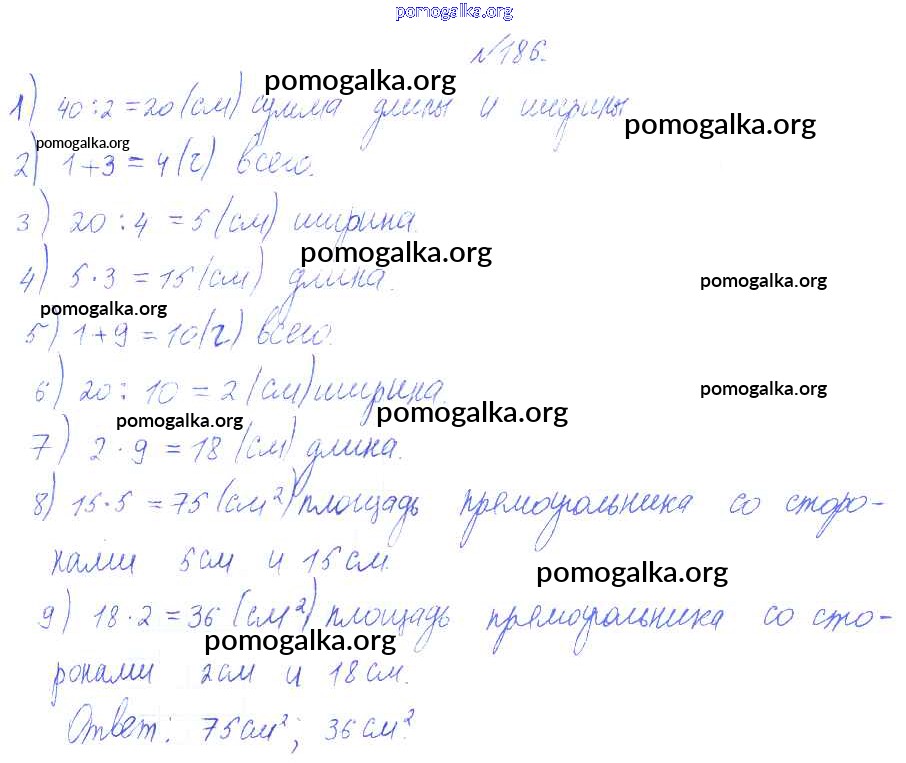 pomogalka.org
№186.
pomogalka.org
1) 40:2=20 (см) сумма длины и ширины
pomogalka.org
pomogalka.org
2) 1+3=4(ч) всего.
3) 20:4=5 (см) ширина.
pomogalka.org
4) 5·3=15 (см) длина.
pomogalka.org
pomogalka.org
5) 1+9=10(ч) всего.
6) 20:10=2 (см) ширина.
pomogalka.org
pomogalka.org
pomogalka.org
7) 2·9=18 (см) длина.
8) 15·5=75 (см²) площадь прямоугольника со сторо-
нами 5см и 15см.
pomogalka.org
9) 18·2=36 (см²) площадь прямоугольника со сто-
pomogalka.org
ронами 2см и 18см.
Ответ: 75см²; 36см².